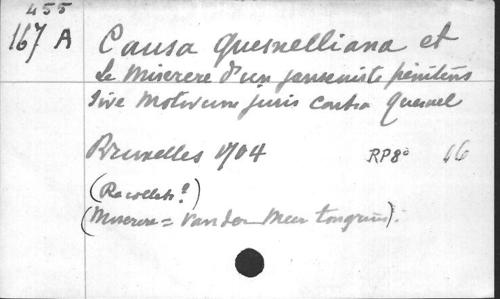 455
167 A
Causa Quesnelliana et
Le Miserere d'un janseniste pénitens
sive Motivum juris contra Quesnel
Bruxelles 1704 RP8° 16
(Recollets?)
(Miserere = Van den Meer Tongrum).